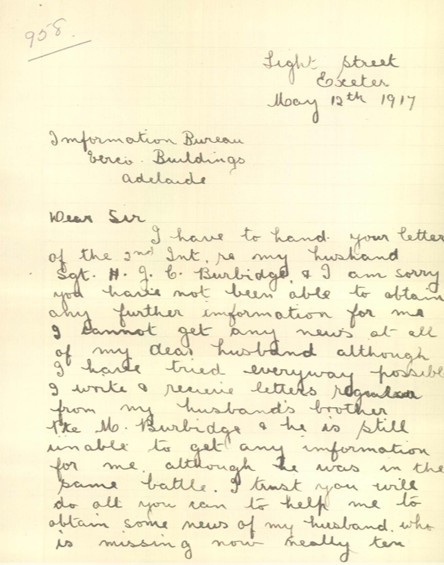 958.
Light Street
Exeter
May 12th 1917
Imformation Bureau
Verco. Buildings
Adelaide
Dear Sir
I have to hand your letter
of the 2nd Int. re my husband
Sgt. H. J. C. Burbidge, & I am sorry
you have not been able to obtain
any further information for me
I cannot get any news at all
of my dear husband although
I have tried everyway possible
I write & recieve letters regular
from my husband's brother
Pte M. Burbidge & he is still
unable to get any information
for me, although he was in the
same battle. I trust you will
do all you can to help me to
obtain some news of my husband, who
is missing now neally ten